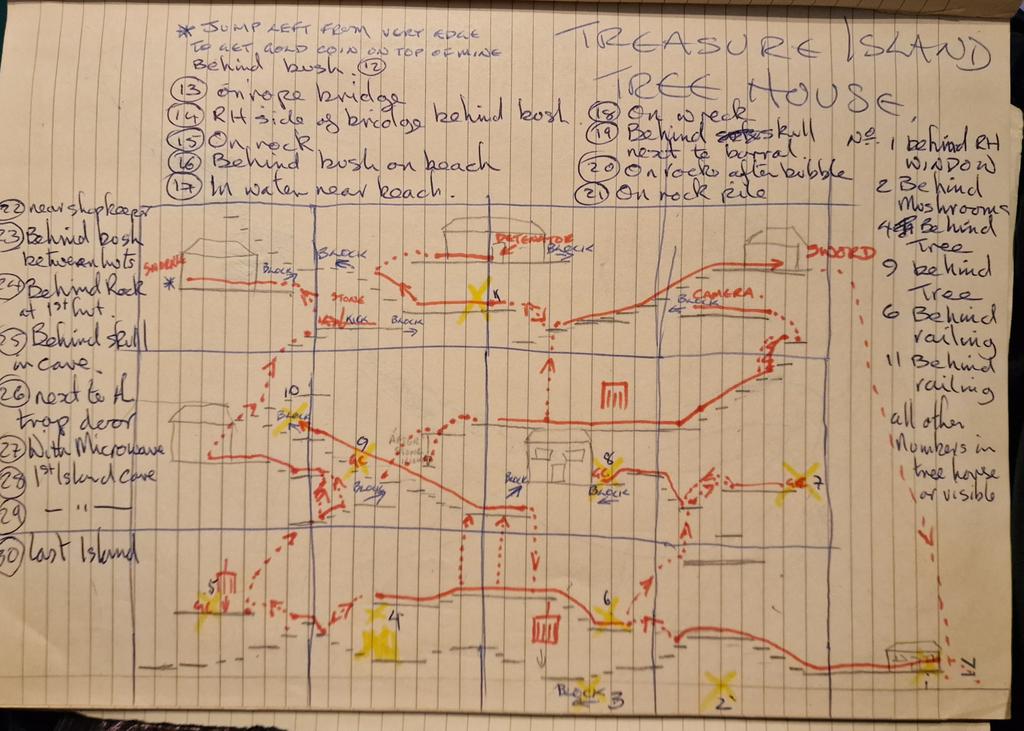 * JUMP LEFT FROM VERY EDGE
TO GET GOLD COIN ON TOP OF MINE
Behind bush. 12
13 on rope bridge
14 RH side of bridge behind bush
15 On rock
16 Behind bush on beach
17 In water near beach.
TREASURE ISLAND
TREE HOUSE
18 On wreck
19 Behind skull
next to barral.
20 On rock after bubble
21 On rock pile
No. 1 behind RH
WINDOW
2 Behind
Mushrooms
4 Behind
Tree
9 behind
Tree
6 Behind
railing
11 Behind
railing
all other
Numbers in
tree house
are visible
22 near shopkeeper
23 Behind bush
between huts
24 Behind Rock
at 1st hut.
25 Behind skull
in cave.
26 next to
trap door
27 With Microwave
28 1st Island cave
29 — " —
30 Last Island
SNORKEL
*
BLOCK
BLOCK
STONE
KICK
BLOCK
DETENATOR
BLOCK
SWORD
CAMERA
BLOCK
10
BLOCK
9
GC
BLOCK
AFTER
BLOCK
8
GC
BLOCK
GC 7
5
GC
4
6
BLOCK 3
2
1